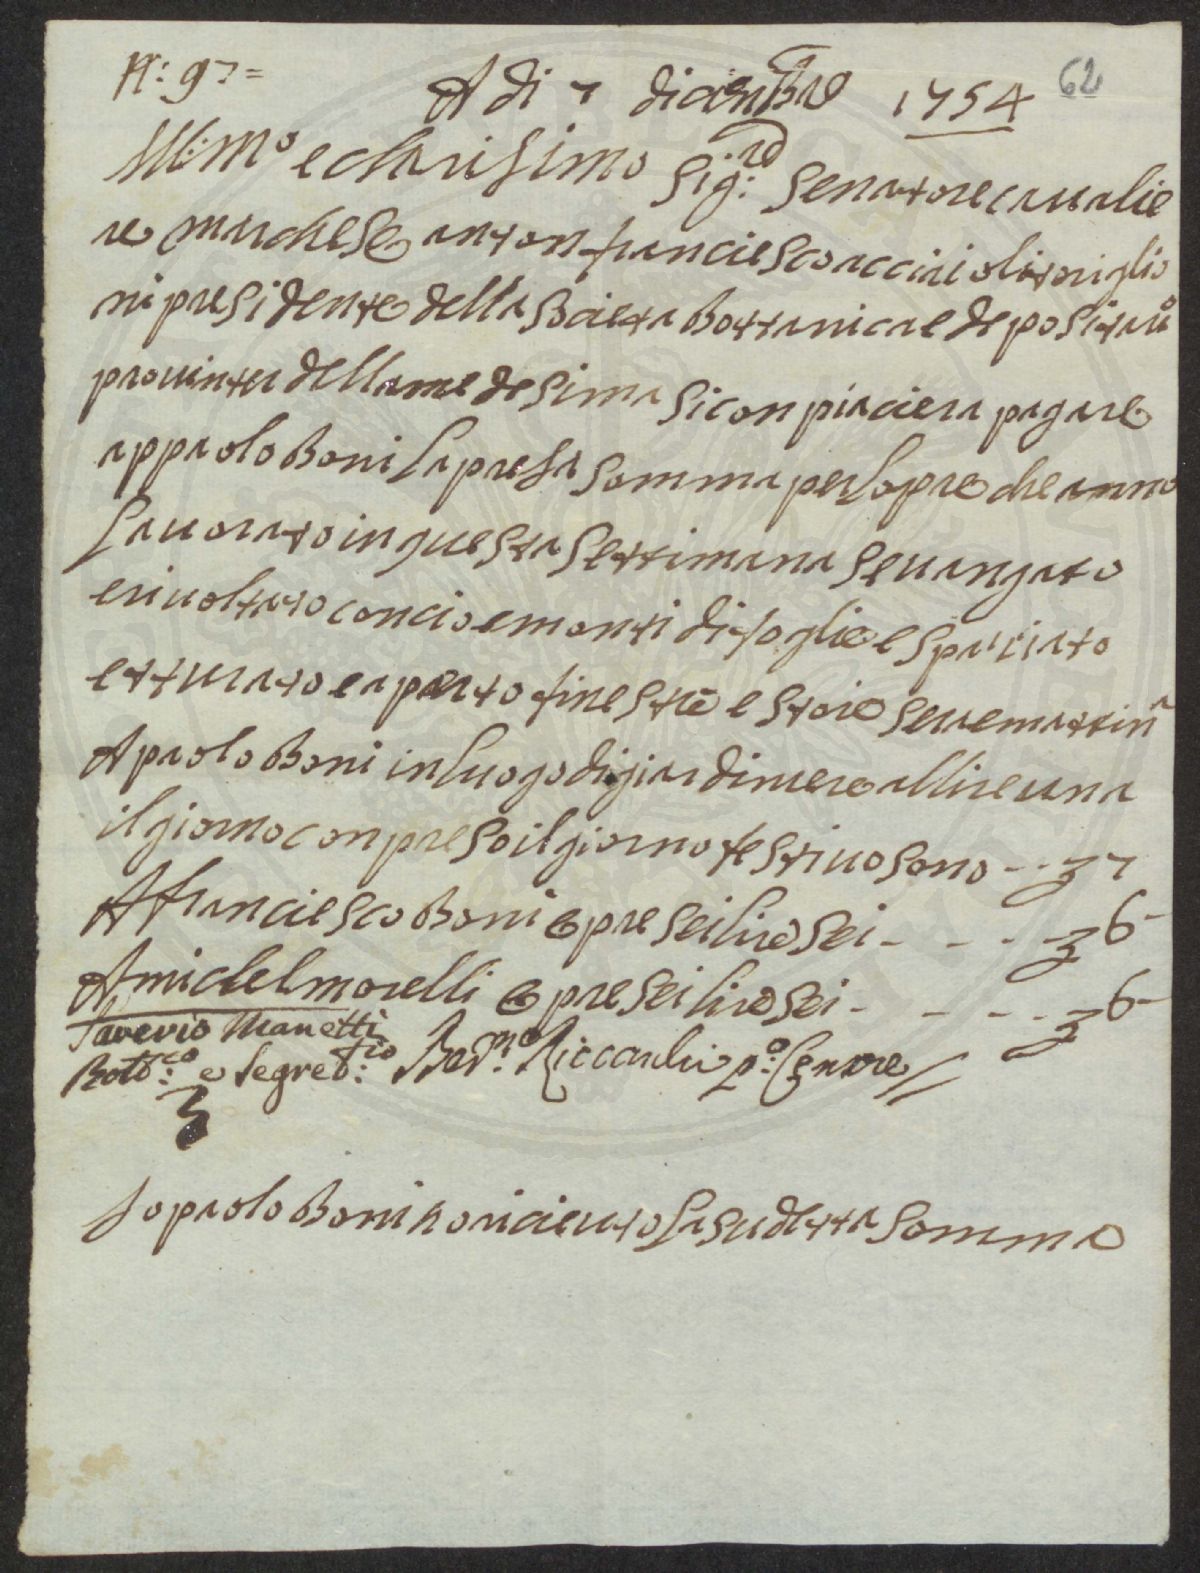 N: 97=
62
A di 7 dicienbre 1754
Ill:mo e clarisimo Sig:re Senatore cavalie
re marchese antonfranciesco acciaioli toriglio
ni presidente della Societa Bottanica e depositaro
pro interi della medesima Si conpiaciera pagare
appaolo Boni la presa Somma per lopre che anno
lavorato in questa Settimana e vangato
e rivoltato concio e monti di foglie e Spaciato
etturato e aperto finestre e Store Sera e mattina
A paolo Boni in luogo di giardiniere allire una
il giorno conpreso il giorno festivo Sono -- 7
A franciesco Boni opre Sei lire Sei - - - - 6-
A michel morelli opre Sei lire Sei - - - - 6-
Saverio Manetti
Bott:co e Segret:rio Ber:no Riccardi p:o Censore
Io paolo Boni ho riceuto la sudetta Somma